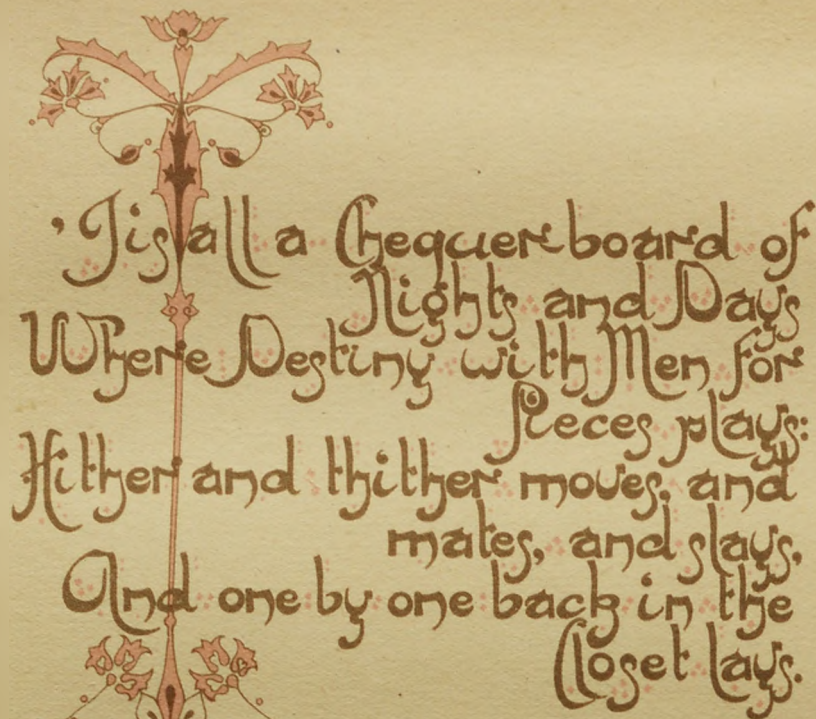 'Tis all a Chequer board of
Nights and Days
Where Destiny with Men for
Pieces plays:
Hither and thither moves, and
mates, and slays,
And one by one back in the
Closet lays.